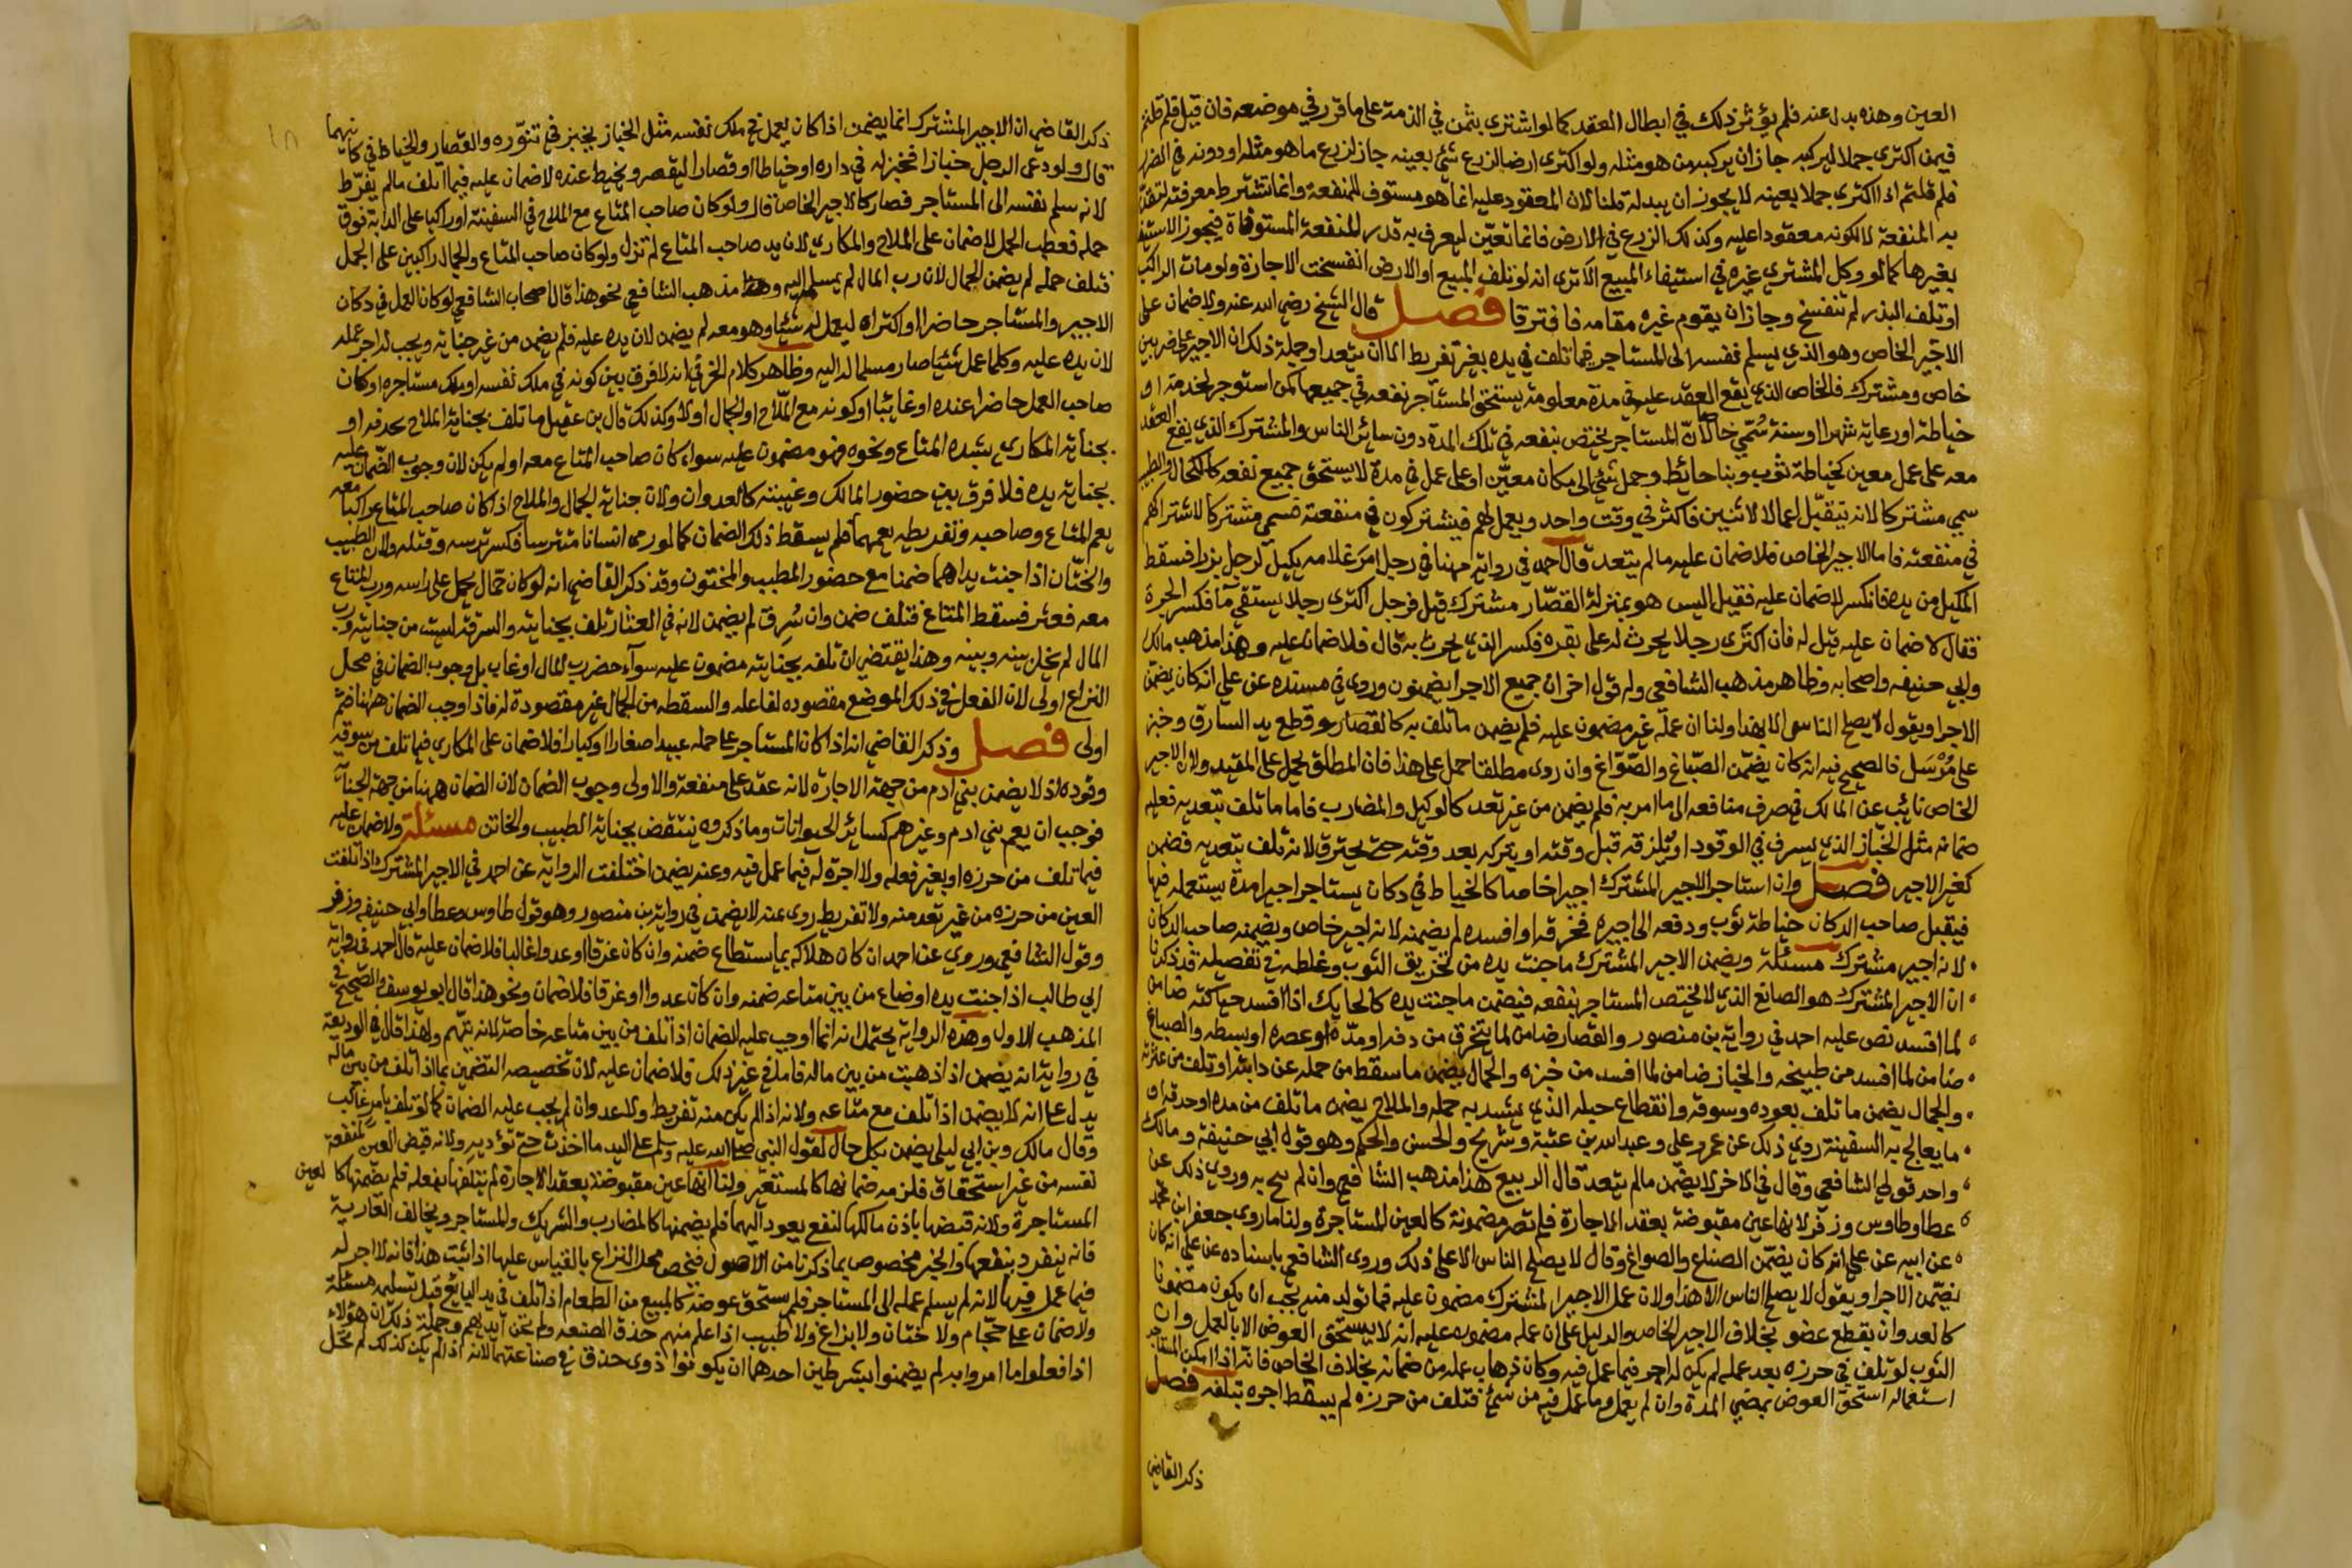 العين وهذه بدل عنه فلم يؤثر ذلك في ابطال العقد كما لو اشترى بثمن في الذمة على ما قرر في موضعه فان قيل فلم قلتم
فيمن اكترى جملا ليركبه جاز ان يركبه من هو مثله ولو اكترى ارضا لزرع شئ بعينه جاز لزرع ما هو مثله او دونه في الضرر
فلم قلتم اذا اكترى جملا بعينه لا يجوز ان يبدله قلنا لان المعقود عليه انما هو مستوف للمنفعة وانما تشترط معرفته لتقدر
به المنفعة لا لكونه معقودا عليه وكذلك الزرع في الارض فانما تعين ليعرف به قدر المنفعة المستوفاة فيجوز الاستيفا
بغيرها كما لو وكل المشتري غيره في استيفاء المبيع الا ترى انه لو تلف المبيع او الارض انفسخت الاجارة ولو مات الراكب
او تلف البذر لم تنفسخ وجاز ان يقوم غيره مقامه فافترقا فصل قال الشيخ رضي الله عنه ولا ضمان على
الاجير الخاص وهو الذي يسلم نفسه الى المستاجر فيما تلف في يده بغير تفريط الا ان يتعدا وجملة ذلك ان الاجير على ضربين
خاص ومشترك فالخاص الذي يقع العقد عليه في مدة معلومة يستحق المستاجر نفعه في جميعها كمن استوجر لخدمة او
خياطة او رعاية شهرا او سنة سمي خاصا لان المستاجر يختص بنفعه في تلك المدة دون سائر الناس والمشترك الذي يقع العقد
معه على عمل معين كخياطة ثوب وبنا حائط وحمل شئ الى مكان معين او على عمل في مدة لا يستحق جميع نفعه كالكحال والطبيب
سمي مشتركا لانه يتقبل اعمالا لاثنين فاكثر في وقت واحد ويعمل لهم فيشتركون في منفعته فسمي مشتركا لاشتراكهم
في منفعته فاما الاجير الخاص فلا ضمان عليه ما لم يتعد قال احمد في رواية مهنا في رجل امر غلامه يكيل لرجل بزرا فسقط
المكيل من يده فانكسر لا ضمان عليه فقيل اليس هو بمنزلة القصار مشترك قيل فرجل اكترى رجلا يستقي ما فكسر الجرة
فقال لا ضمان عليه قيل له فان اكترى رجلا يحرث له على بقره فكسر الذي يحرث به قال فلا ضمان عليه وهذا مذهب مالك
وابي حنيفه واصحابه وظاهر مذهب الشافعي وله قول اخر ان جميع الاجرا يضمنون وروى في مسنده عن علي انه كان يضمن
الاجرا ويقول لا يصلح الناس الا بهذا ولنا ان عمله غير مضمون عليه فلم يضمن ما تلف به كالقصار وقطع يد السارق وخبر
على مرسل فالصحيح فيه انه كان يضمن الصباغ والصواغ وان روى مطلقا حمل على هذا فان المطلق يحمل على المقيد ولان الاجير
الخاص نائب عن المالك في صرف منافعه الى ما امر به فلم يضمن من غير تعد كالوكيل والمضارب فاما ما تلف بتعديه فعليه
ضمانه مثل الخباز الذي يسرف في الوقود او يلزقه قبل وقته او يتركه بعد وقته حتى يحترق لانه تلف بتعديه فضمن
كغير الاجير فصل وان استاجر الاجير المشترك اجيرا خاصا كالخياط في دكان يستاجر اجيرا مدة يستعمله فيها
فيقبل صاحب الدكان خياطة ثوب ودفعه الى اجيره فخرقه او افسده لم يضمنه لانه اجير خاص ويضمنه صاحب الدكان
لانه اجير مشترك مسئلة ويضمن الاجير المشترك ما جنت يده من تخريق الثوب وغلطه في تفصيله قد ذكرنا
ان الاجير المشترك هو الصانع الذي لا يختص المستاجر بنفعه فيضمن ما جنت يده كالحايك اذا افسد حياكته ضامن
لما افسد نص عليه احمد في رواية بن منصور والقصار ضامن لما يتخرق من دقه او مده او عصره او بسطه والصباغ
ضامن لما افسد من طبيخه والخباز ضامن لما افسد من خبزه والحمال يضمن ما سقط من حمله عن دابته او تلف من عثرته
والجمال يضمن ما تلف بعوده وسوقه وانقطاع حبله الذي يشد به حمله والملاح يضمن ما تلف من مده او حدفه او
ما يعالج به السفينة روي ذلك عن عمر وعلي وعبد الله بن عتبة وشريح والحسن والحكم وهو قول ابي حنيفة ومالك
واحد قولي الشافعي وقال في الاخر لا يضمن ما لم يتعد قال الربيع هذا مذهب الشافعي وان لم يبح به وروى ذلك عن
عطا وطاوس وزفر لانها عين مقبوضة بعقد الاجارة فلم تصر مضمونة كالعين المستاجرة ولنا ما روى جعفر ابن محمد
عن ابيه عن علي انه كان يضمن الصناع والصواغ وقال لا يصلح الناس الا على ذلك وروى الشافعي باسناده عن علي انه كان
يضمن الاجرا ويقول لا يصلح الناس الا هذا ولان عمل الاجير المشترك مضمون عليه فما تولد منه يجب ان يكون مضمونا
كالعدوان بقطع عضو بخلاف الاجير الخاص والدليل على ان عمله مضمون عليه انه لا يستحق العوض الا بالعمل وان
الثوب لو تلف في حرزه بعد عمله لم يكن له اجر فيما عمل فيه وكان ذهاب عمله من ضمانه بخلاف الخاص فانه اذا امكن المستاجر
استعماله استحق العوض بمضي المدة وان لم يعمل وما عمل فيه من شئ فتلف من حرزه لم يسقط اجره بتلفه فصل
ذكر القاضي
ذكر القاضي ان الاجير المشترك انما يضمن اذا كان يعمل في ملك نفسه مثل الخباز يخبز في تنوره والقصار والخياط في دكانيهما
قال ولو دعى الرجل خبازا فخبز له في داره او خياطا او قصارا ليقصر ويخيط عنده لا ضمان عليه فيما اتلف مالم يفرط
لانه سلم نفسه الى المستاجر فصار كالاجير الخاص قال ولو كان صاحب المتاع مع الملاح في السفينة او راكبا على الدابة فوق
حمله فعطب الحمل لا ضمان على الملاح والمكاري لان يد صاحب المتاع لم تزل ولو كان صاحب المتاع والجمال راكبين على الجمل
فتلف حمله لم يضمن الجمال لان رب المال لم يسلمه اليه ومذهب الشافعي نحو هذا قال اصحاب الشافعي لو كان العمل في دكان
الاجير والمستاجر حاضرا او اكتراه ليعمل له شيئا وهو معه لم يضمن لان يده عليه فلم يضمن من غير جنايته ويجب له اجر عمله
لان يده عليه وكلما عمل شيئا صار مسلما له اليه وظاهر كلام الخرقي انه لا فرق بين كونه في ملك نفسه او ملك مستاجره او كان
صاحب العمل حاضرا عنده او غائبا او كونه مع الملاح او الجمال او لا وكذلك قال بن عقيل ما تلف بجناية الملاح بحدفه او
بجناية المكاري بشده المتاع ونحوه فهو مضمون عليه سواء كان صاحب المتاع معه او لم يكن لان وجوب الضمان عليه
بجناية يده فلا فرق بين حضور المالك وغيبته كالعدوان ولان جناية الجمال والملاح اذا كان صاحب المتاع راكبا معه
يعم المتاع وصاحبه وتفريطه يعمهما فلم يسقط ذلك الضمان كما لو رمى انسانا متترسا فكسر ترسه وقتله ولان الطبيب
والختان اذا جنت يداهما ضمنا مع حضور المطبب والمختون وقد ذكر القاضي انه لو كان حمال يحمل على راسه ورب المتاع
معه فعثر فسقط المتاع فتلف ضمن وان سرق لم يضمن لانه في العثار تلف بجنايته والسرقة ليست من جنايته ورب
المال لم يحل بينه وبينه وهذا يقتضي ان تلفه بجنايته مضمون عليه سواء حضر رب المال او غاب بل وجوب الضمان في محل
النزاع اولى لان الفعل في ذلك الموضع مقصوده لفاعله والسقطه من الحمال غير مقصودة له فاذا وجب الضمان ههنا فثم
اولى فصل وذكر القاضي انه اذا كان المستاجر على حمله عبيدا صغارا او كبارا فلا ضمان على المكاري فيما تلف من سوقه
وقوده اذ لا يضمن بني ادم من جهة الاجارة لانه عقد على منفعة والاولى وجوب الضمان لان الضمان ههنا من جهة الجناية
فوجب ان يعم بني ادم وغيرهم كسائر الحيوانات وما ذكروه ينتقض بجناية الطبيب والخاتن مسئلة ولا ضمان عليه
فيما تلف من حرزه او بغير فعله ولا اجرة له فيما عمل فيه وعنه يضمن اختلفت الرواية عن احمد في الاجير المشترك اذا تلفت
العين من حرزه من غير تعد منه ولا تفريط روى عنه لا يضمن في رواية بن منصور وهو قول طاوس وعطا وابي حنيفه وزفر
وقول الشافعي وروي عن احمد ان كان هلاكه بما يستطاع ضمنه وان كان غرقا او عدوا غالبا فلا ضمان عليه قال احمد في رواية
ابي طالب اذا جنت يده او ضاع من بين متاعه ضمنه وان كان عدوا او غرقا فلا ضمان ونحو هذا قال ابو يوسف والصحيح في
المذهب الاول وهذه الرواية يحتمل انه انما اوجب عليه الضمان اذا تلف من بين متاعه خاصة لانه يتهم ولهذا قال في الوديعة
في رواية انه يضمن اذا ذهبت من بين ماله فاما في غير ذلك فلا ضمان عليه لان تخصيصه التضمين بما اذا تلف من بين ماله
يدل على انه لا يضمن اذا تلف مع متاعه ولانه اذا لم يكن منه تفريط ولا عدوان لم يجب عليه الضمان كما لو تلف بامر غالب
وقال مالك وبن ابي ليلى يضمن بكل حال لقول النبي صلى الله عليه وسلم على اليد ما اخذت حتى تؤديه ولانه قبض العين لمنفعة
نفسه من غير استحقاق فلزمه ضمانها كالمستعير ولنا انها عين مقبوضة بعقد الاجارة لم يتلفها بفعله فلم يضمنها كالعين
المستاجرة ولانه قبضها باذن مالكها لنفع يعود اليهما فلم يضمنها كالمضارب والشريك والمستاجر ويخالف العارية
فانه ينفرد بنفعها والخبر مخصوص بما ذكرنا من الاصول فنخص محل النزاع بالقياس عليها اذا ثبت هذا فانه لا اجر له
فيما عمل فيها لانه لم يسلم عمله الى المستاجر فلم يستحق عوضه كالمبيع من الطعام اذا تلف في يد البائع قبل تسليمه مسئلة
ولا ضمان على حجام ولا ختان ولا بزاغ ولا طبيب اذا علم منهم حذق الصنعه ولم تجن ايديهم وجملة ذلك ان هؤلاء
اذا فعلوا ما امروا به لم يضمنوا بشرطين احدهما ان يكونوا ذوى حذق في صناعتهم لانه اذا لم يكن كذلك لم تحل